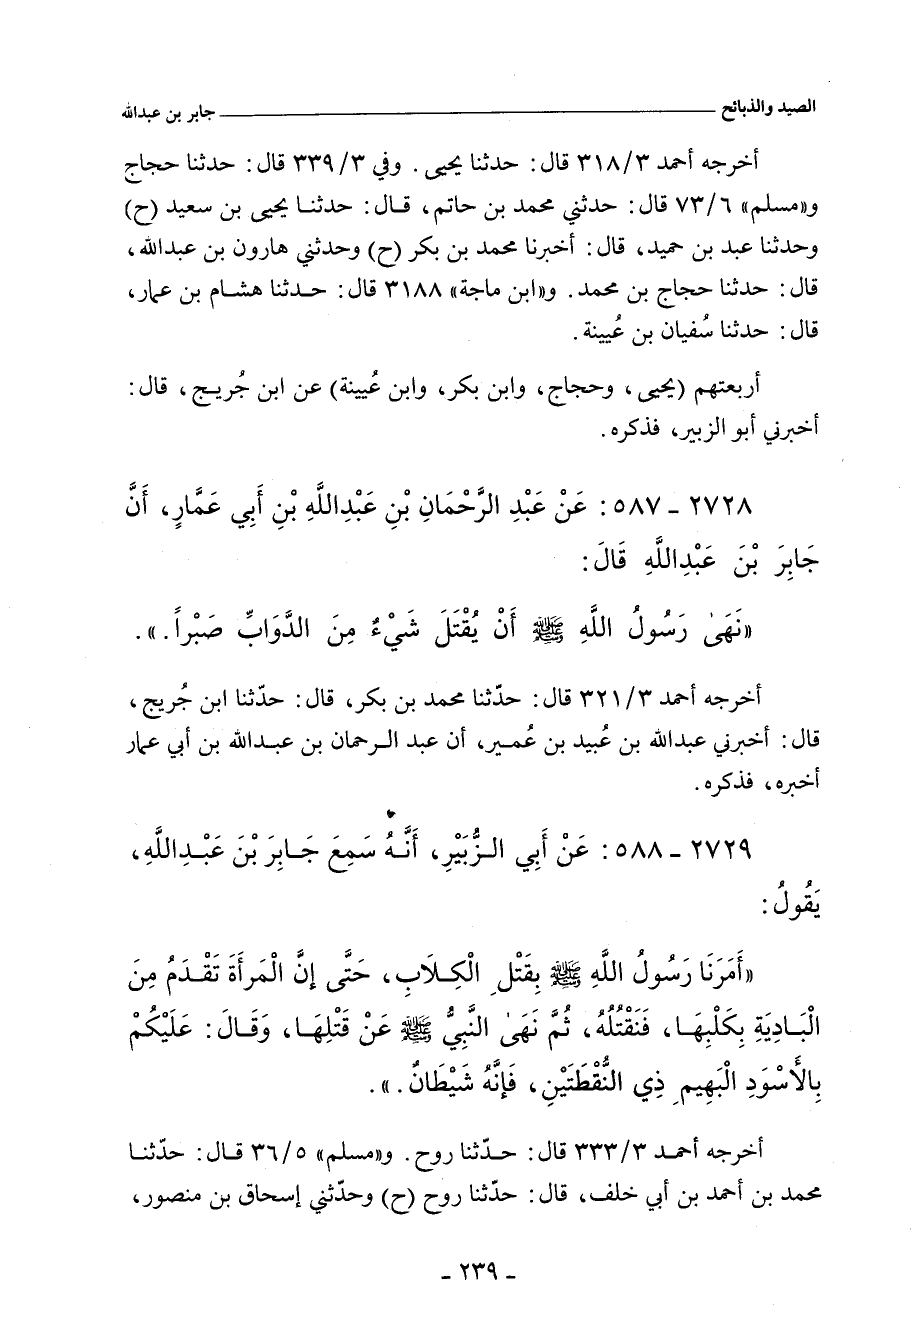 الصيد والذبائح ــــــــ جابر بن عبدالله
أخرجه أحمد ٣١٨/٣ قال: حدثنا يحيى. وفي ٣٣٩/٣ قال: حدثنا حجاج
و«مسلم» ٧٣/٦ قال: حدثني محمد بن حاتم، قال: حدثنا يحيى بن سعيد (ح)
وحدثنا عبد بن حميد، قال: أخبرنا محمد بن بكر (ح) وحدثني هارون بن عبدالله،
قال: حدثنا حجاج بن محمد. و«ابن ماجة» ٣١٨٨ قال: حدثنا هشام بن عمار،
قال: حدثنا سُفيان بن عُيينة.
أربعتهم (يحيى، وحجاج، وابن بكر، وابن عُيينة) عن ابن جُريج، قال:
أخبرني أبو الزبير، فذكره.
٢٧٢٨ - ٥٨٧: عَنْ عَبْدِ الرَّحْمَانِ بْنِ عَبْدِاللَّهِ بْنِ أَبِي عَمَّارٍ، أَنَّ
جَابِرَ بْنَ عَبْدِاللَّهِ قَالَ:
«نَهَىٰ رَسُولُ اللَّهِ ﷺ أَنْ يُقْتَلَ شَيْءٌ مِنَ الدَّوَابِّ صَبْراً.».
أخرجه أحمد ٣٢١/٣ قال: حدّثنا محمد بن بكر، قال: حدّثنا ابن جُريج،
قال: أخبرني عبدالله بن عُبيد بن عُمير، أن عبد الرحمان بن عبدالله بن أبي عمار
أخبره، فذكره.
٢٧٢٩ - ٥٨٨: عَنْ أَبِي الزُّبَيْرِ، أَنَّهُ سَمِعَ جَابِرَ بْنَ عَبْدِاللَّهِ،
يَقُولُ:
«أَمَرَنَا رَسُولُ اللَّهِ ﷺ بِقَتْلِ الْكِلَابِ، حَتَّى إِنَّ الْمَرأَةَ تَقْدَمُ مِنَ
الْبَادِيَةِ بِكَلْبِهَا، فَنَقْتُلُهُ، ثُمَّ نَهَىٰ النَّبِيُّ ﷺ عَنْ قَتْلِهَا، وَقَالَ: عَلَيْكُمْ
بِالأَسْوَدِ الْبَهِيمِ ذِي النُّقْطَتَيْنِ، فَإِنَّهُ شَيْطَانٌ.».
أخرجه أحمد ٣٣٣/٣ قال: حدّثنا روح. و«مسلم» ٣٦/٥ قال: حدّثنا
محمد بن أحمد بن أبي خلف، قال: حدّثنا روح (ح) وحدّثني إسحاق بن منصور،
- ٢٣٩ -